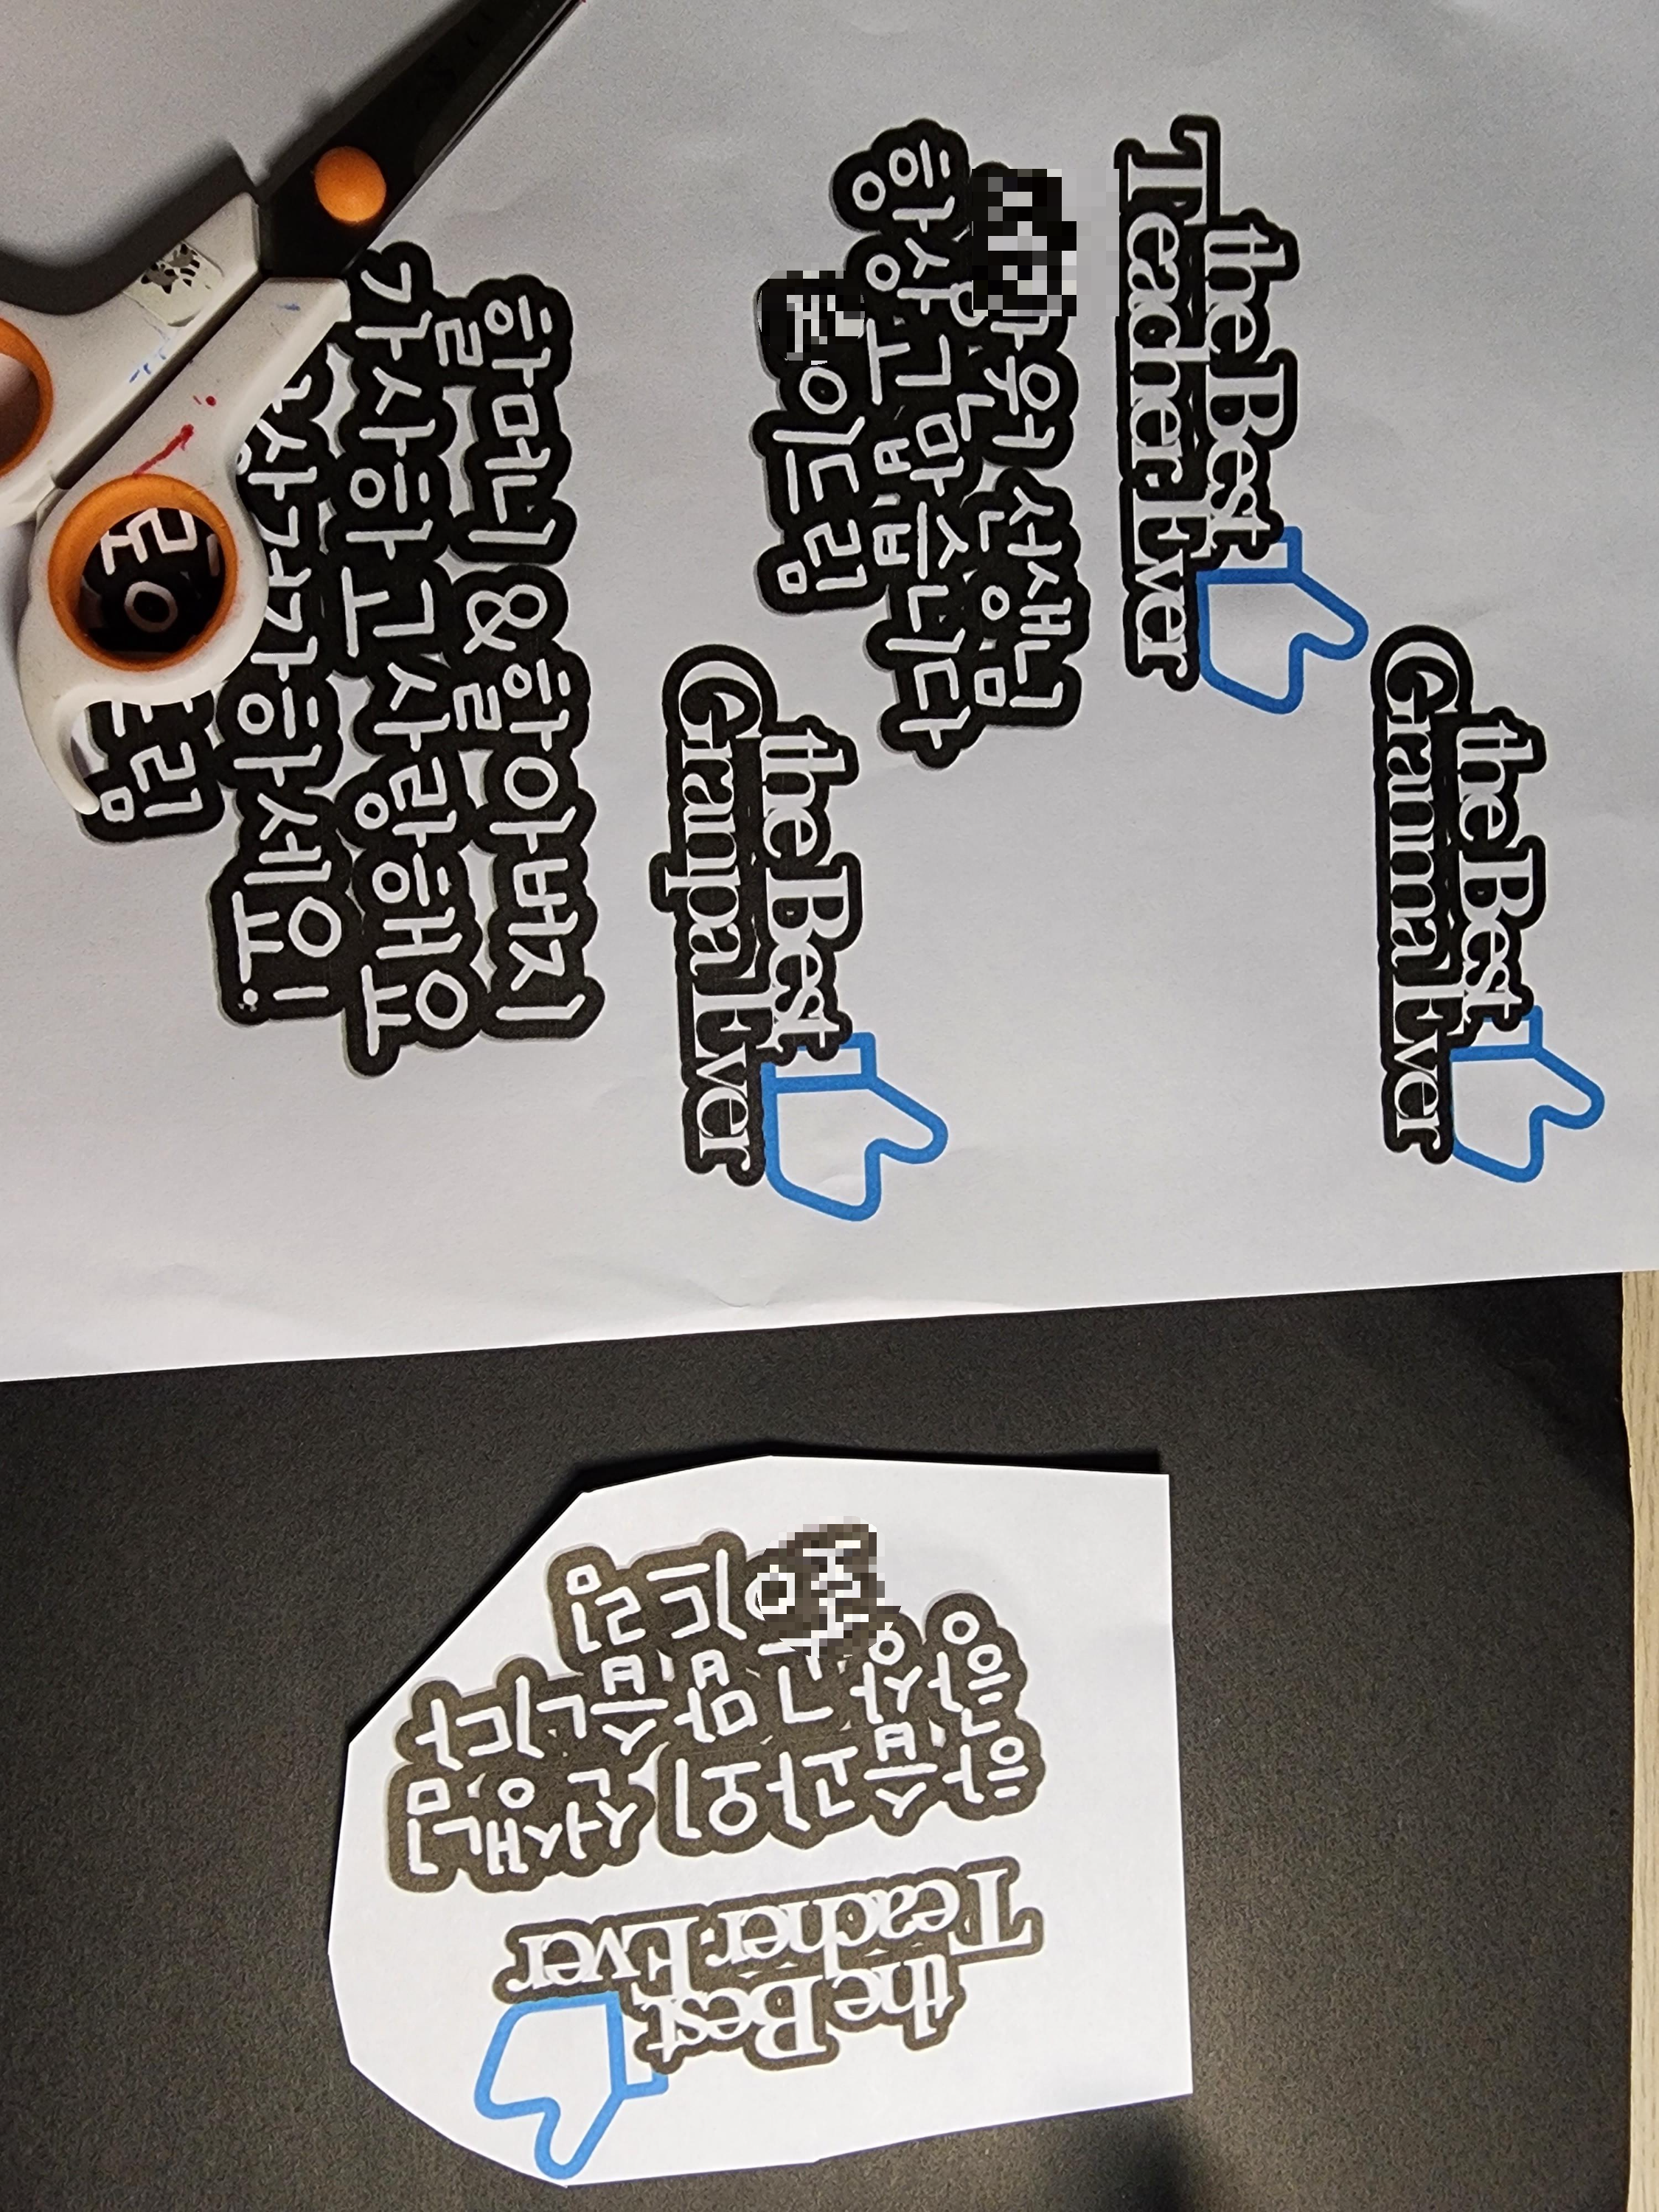 the Best
Granma Ever
the Best
Teacher Ever
선생님
항상 고맙습니다
이 드림
the Best
Grampa Ever
할머니 & 할아버지
감사하고 사랑해요
건강하세요!
드림
the Best
Teacher Ever
학습과외 선생님
항상 고맙습니다
이 드림